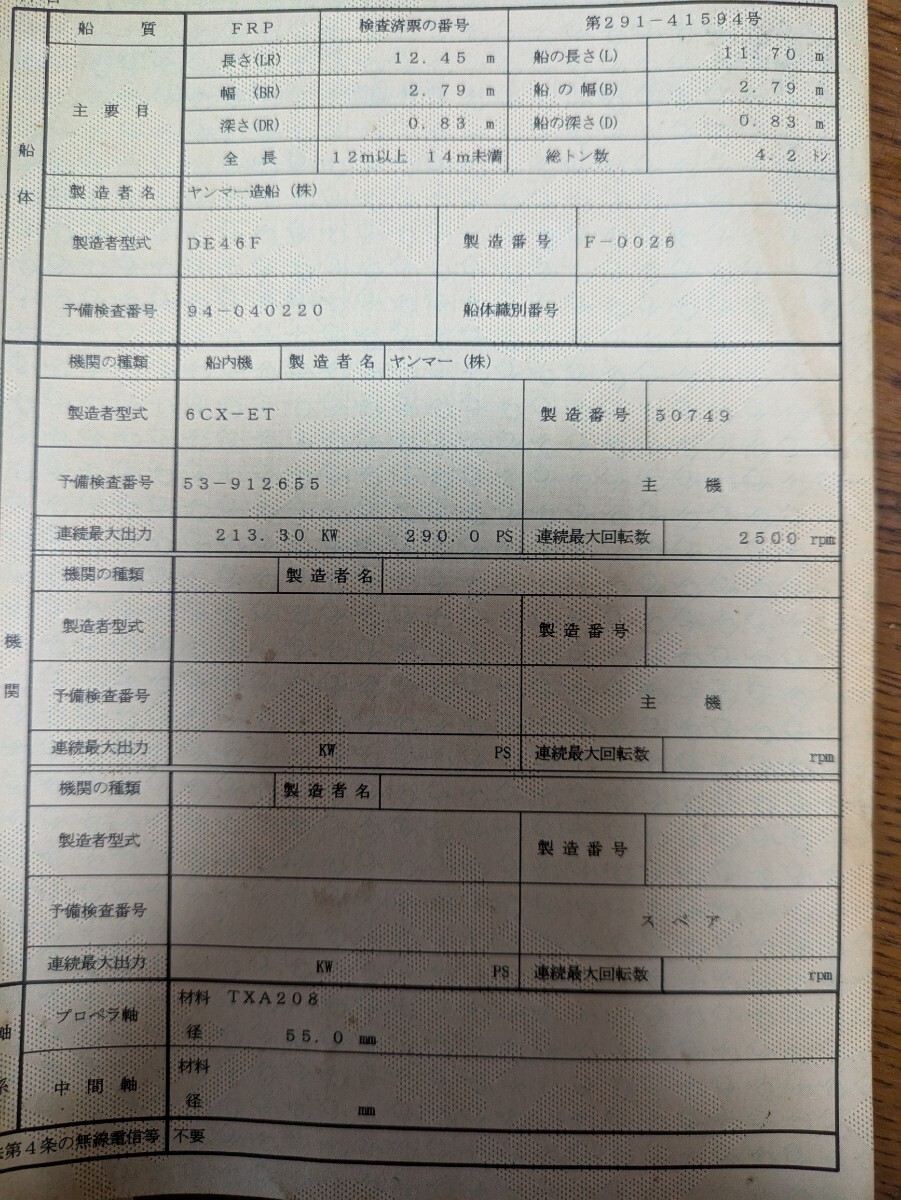 船質 ＦＲＰ 検査済票の番号 第２９１－４１５９４号
船体
主要目
長さ(LR) １２．４５ m 船の長さ(L) １１．７０ m
幅 (BR) ２．７９ m 船の幅(B) ２．７９ m
深さ(DR) ０．８３ m 船の深さ(D) ０．８３ m
全長 １２m以上 １４m未満 総トン数 ４．２ トン
製造者名 ヤンマー造船（株）
製造者型式 ＤＥ４６Ｆ 製造番号 Ｆ－００２６
予備検査番号 ９４－０４０２２０ 船体識別番号
機関
機関の種類 船内機 製造者名 ヤンマー（株）
製造者型式 ６ＣＸ－ＥＴ 製造番号 ５０７４９
予備検査番号 ５３－９１２６５５ 主機
連続最大出力 ２１３．３０ KW ２９０．０ PS 連続最大回転数 ２５００ rpm
機関の種類 製造者名
製造者型式 製造番号
予備検査番号 主機
連続最大出力 KW PS 連続最大回転数 rpm
機関の種類 製造者名
製造者型式 製造番号
予備検査番号 スペア
連続最大出力 KW PS 連続最大回転数 rpm
軸系
プロペラ軸 材料 ＴＸＡ２０８
径 ５５．０ mm
中間軸 材料
径 mm
第４条の無線電信等 不要